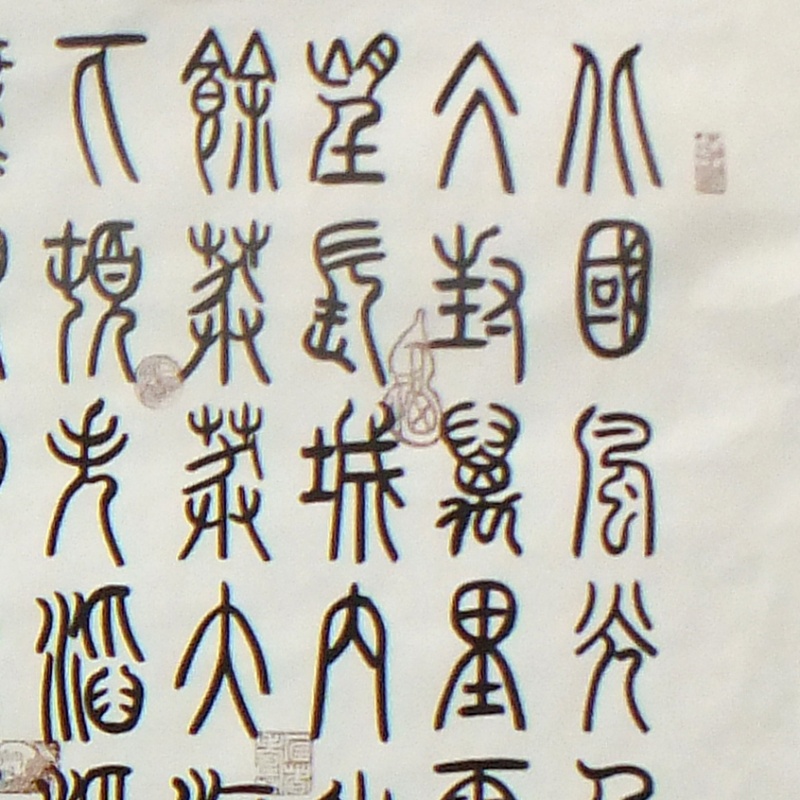 北國風光
仌封萬里
望長城內
餘莽莽大
下頓失滔